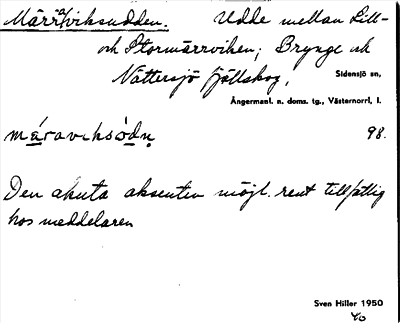 Märraviksudden. Udde mellan Lill-
och Stormärrviken; Brynge och
Nättersjö fjällskog, Sidensjö sn,
Ångermanl. n. doms. tg., Västernorrl. l.
máravıksòdṇ 98.
Den akuta aksenten möjl. rent tillfällig
hos meddelaren
Sven Hiller 1950